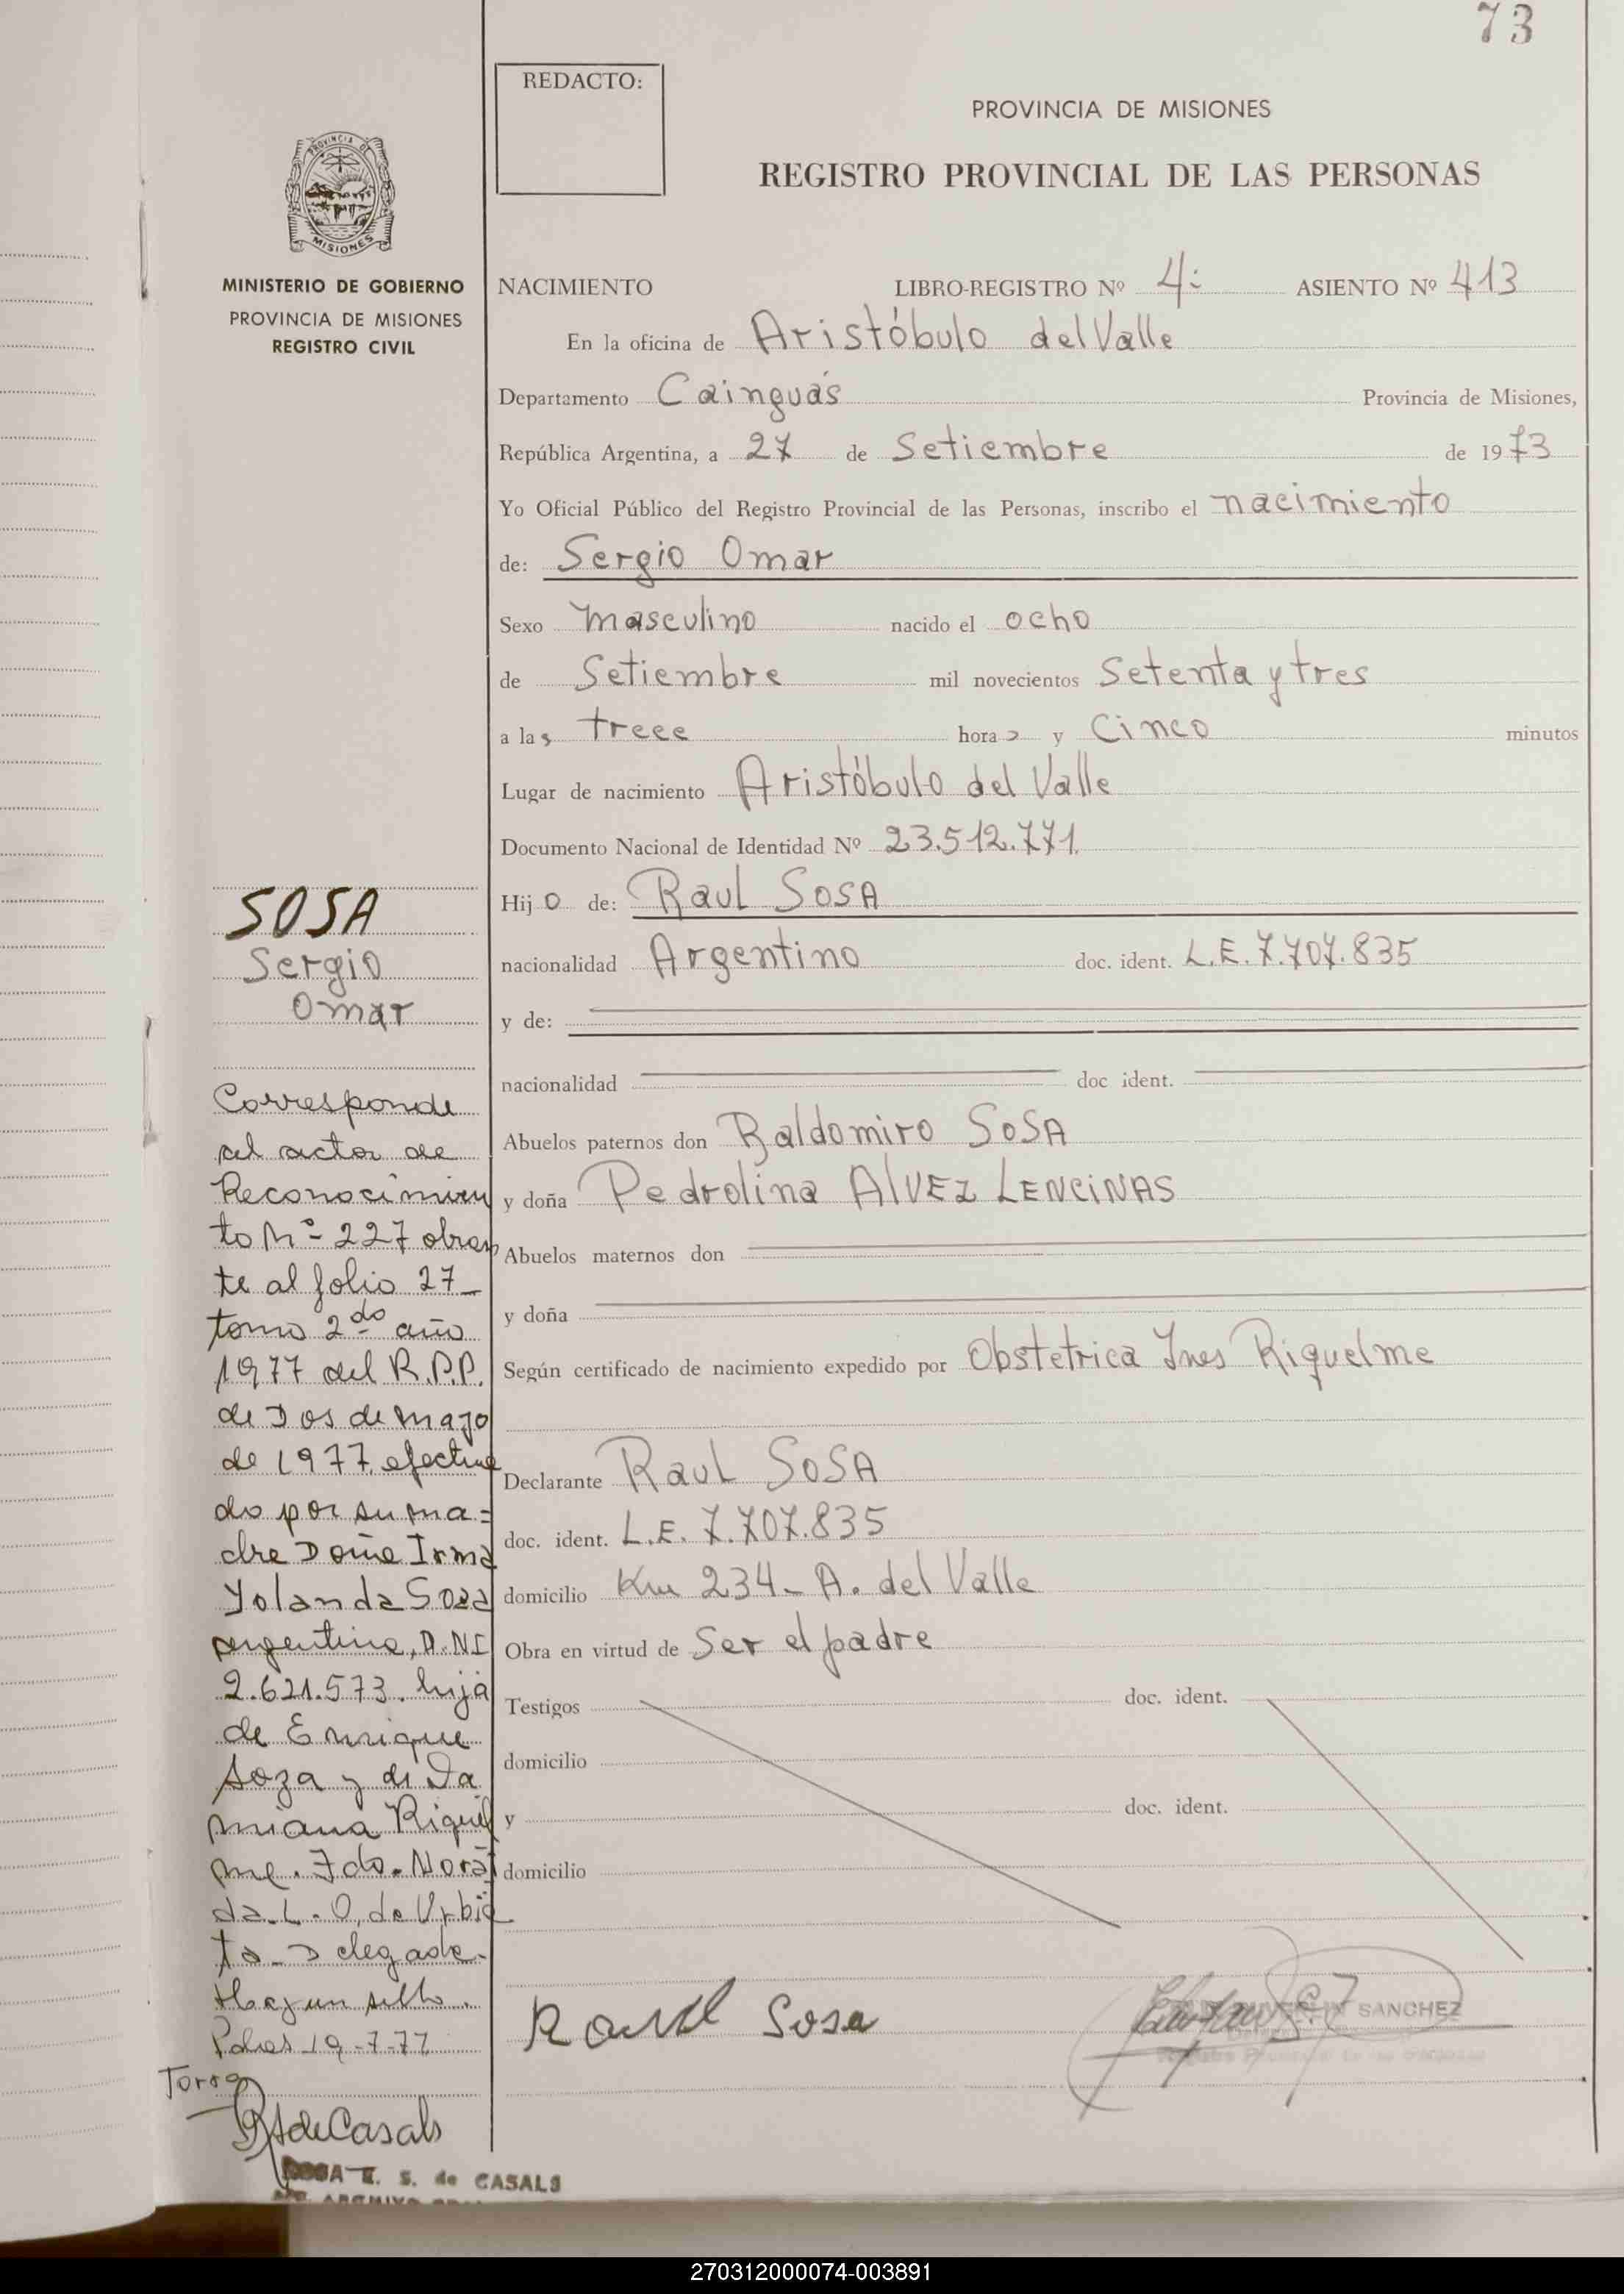 73
REDACTO:
PROVINCIA DE MISIONES
REGISTRO PROVINCIAL DE LAS PERSONAS
PROVINCIA DE
MISIONES
MINISTERIO DE GOBIERNO
PROVINCIA DE MISIONES
REGISTRO CIVIL
NACIMIENTO LIBRO-REGISTRO Nº 4: ASIENTO Nº 413
En la oficina de Aristóbulo del Valle
Departamento Cainguás Provincia de Misiones,
República Argentina, a 27 de Setiembre de 1973
Yo Oficial Público del Registro Provincial de las Personas, inscribo el nacimiento
de: Sergio Omar
Sexo masculino nacido el ocho
de Setiembre mil novecientos Setenta y tres
a las trece horas y Cinco minutos
Lugar de nacimiento Aristóbulo del Valle
Documento Nacional de Identidad Nº 23.512.771.
Hijo de: Raul SOSA
nacionalidad Argentino doc. ident. L.E. 7.707.835
y de:
nacionalidad doc ident.
Abuelos paternos don Baldomiro SOSA
y doña Pedrolina AlVEZ LENCiNAS
Abuelos maternos don
y doña
Según certificado de nacimiento expedido por Obstetrica Ines Riquelme
Declarante Raul SOSA
doc. ident. L.E. 7.707.835
domicilio Km 234- A. del Valle
Obra en virtud de Ser el padre
Testigos doc. ident.
domicilio
y doc. ident.
domicilio
Raul Sosa
SANCHEZ
SOSA
Sergio
Omar
Corresponde
al acta de
Reconocimien
to Nº- 227 obran
te al folio 27-
tomo 2do año
1977 del R.P.P.
de Dos de Mayo
de 1977, efectua
do por su ma=
dre Doña Irma
Yolanda Soza
argentina, D.NI
2.621.573. hija
de Enrique
Soza y de Da
miana Riquel
me. Fdo. Norai
da L. O. de Urbie
ta - Delegada.
Hay un sello.
Pdas 19-7-77
R A de Casals
E. S. de CASALS
270312000074-003891